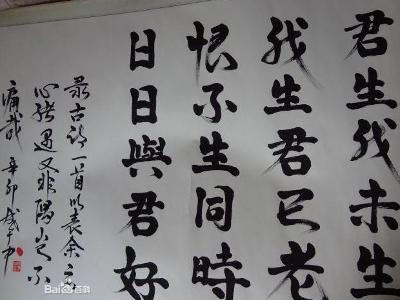 君生我未生
我生君已老
恨不生同時
日日與君好
录古詩一首以表余之
心緒遇又非偶豈不
痛哉 辛卯
Bai百科